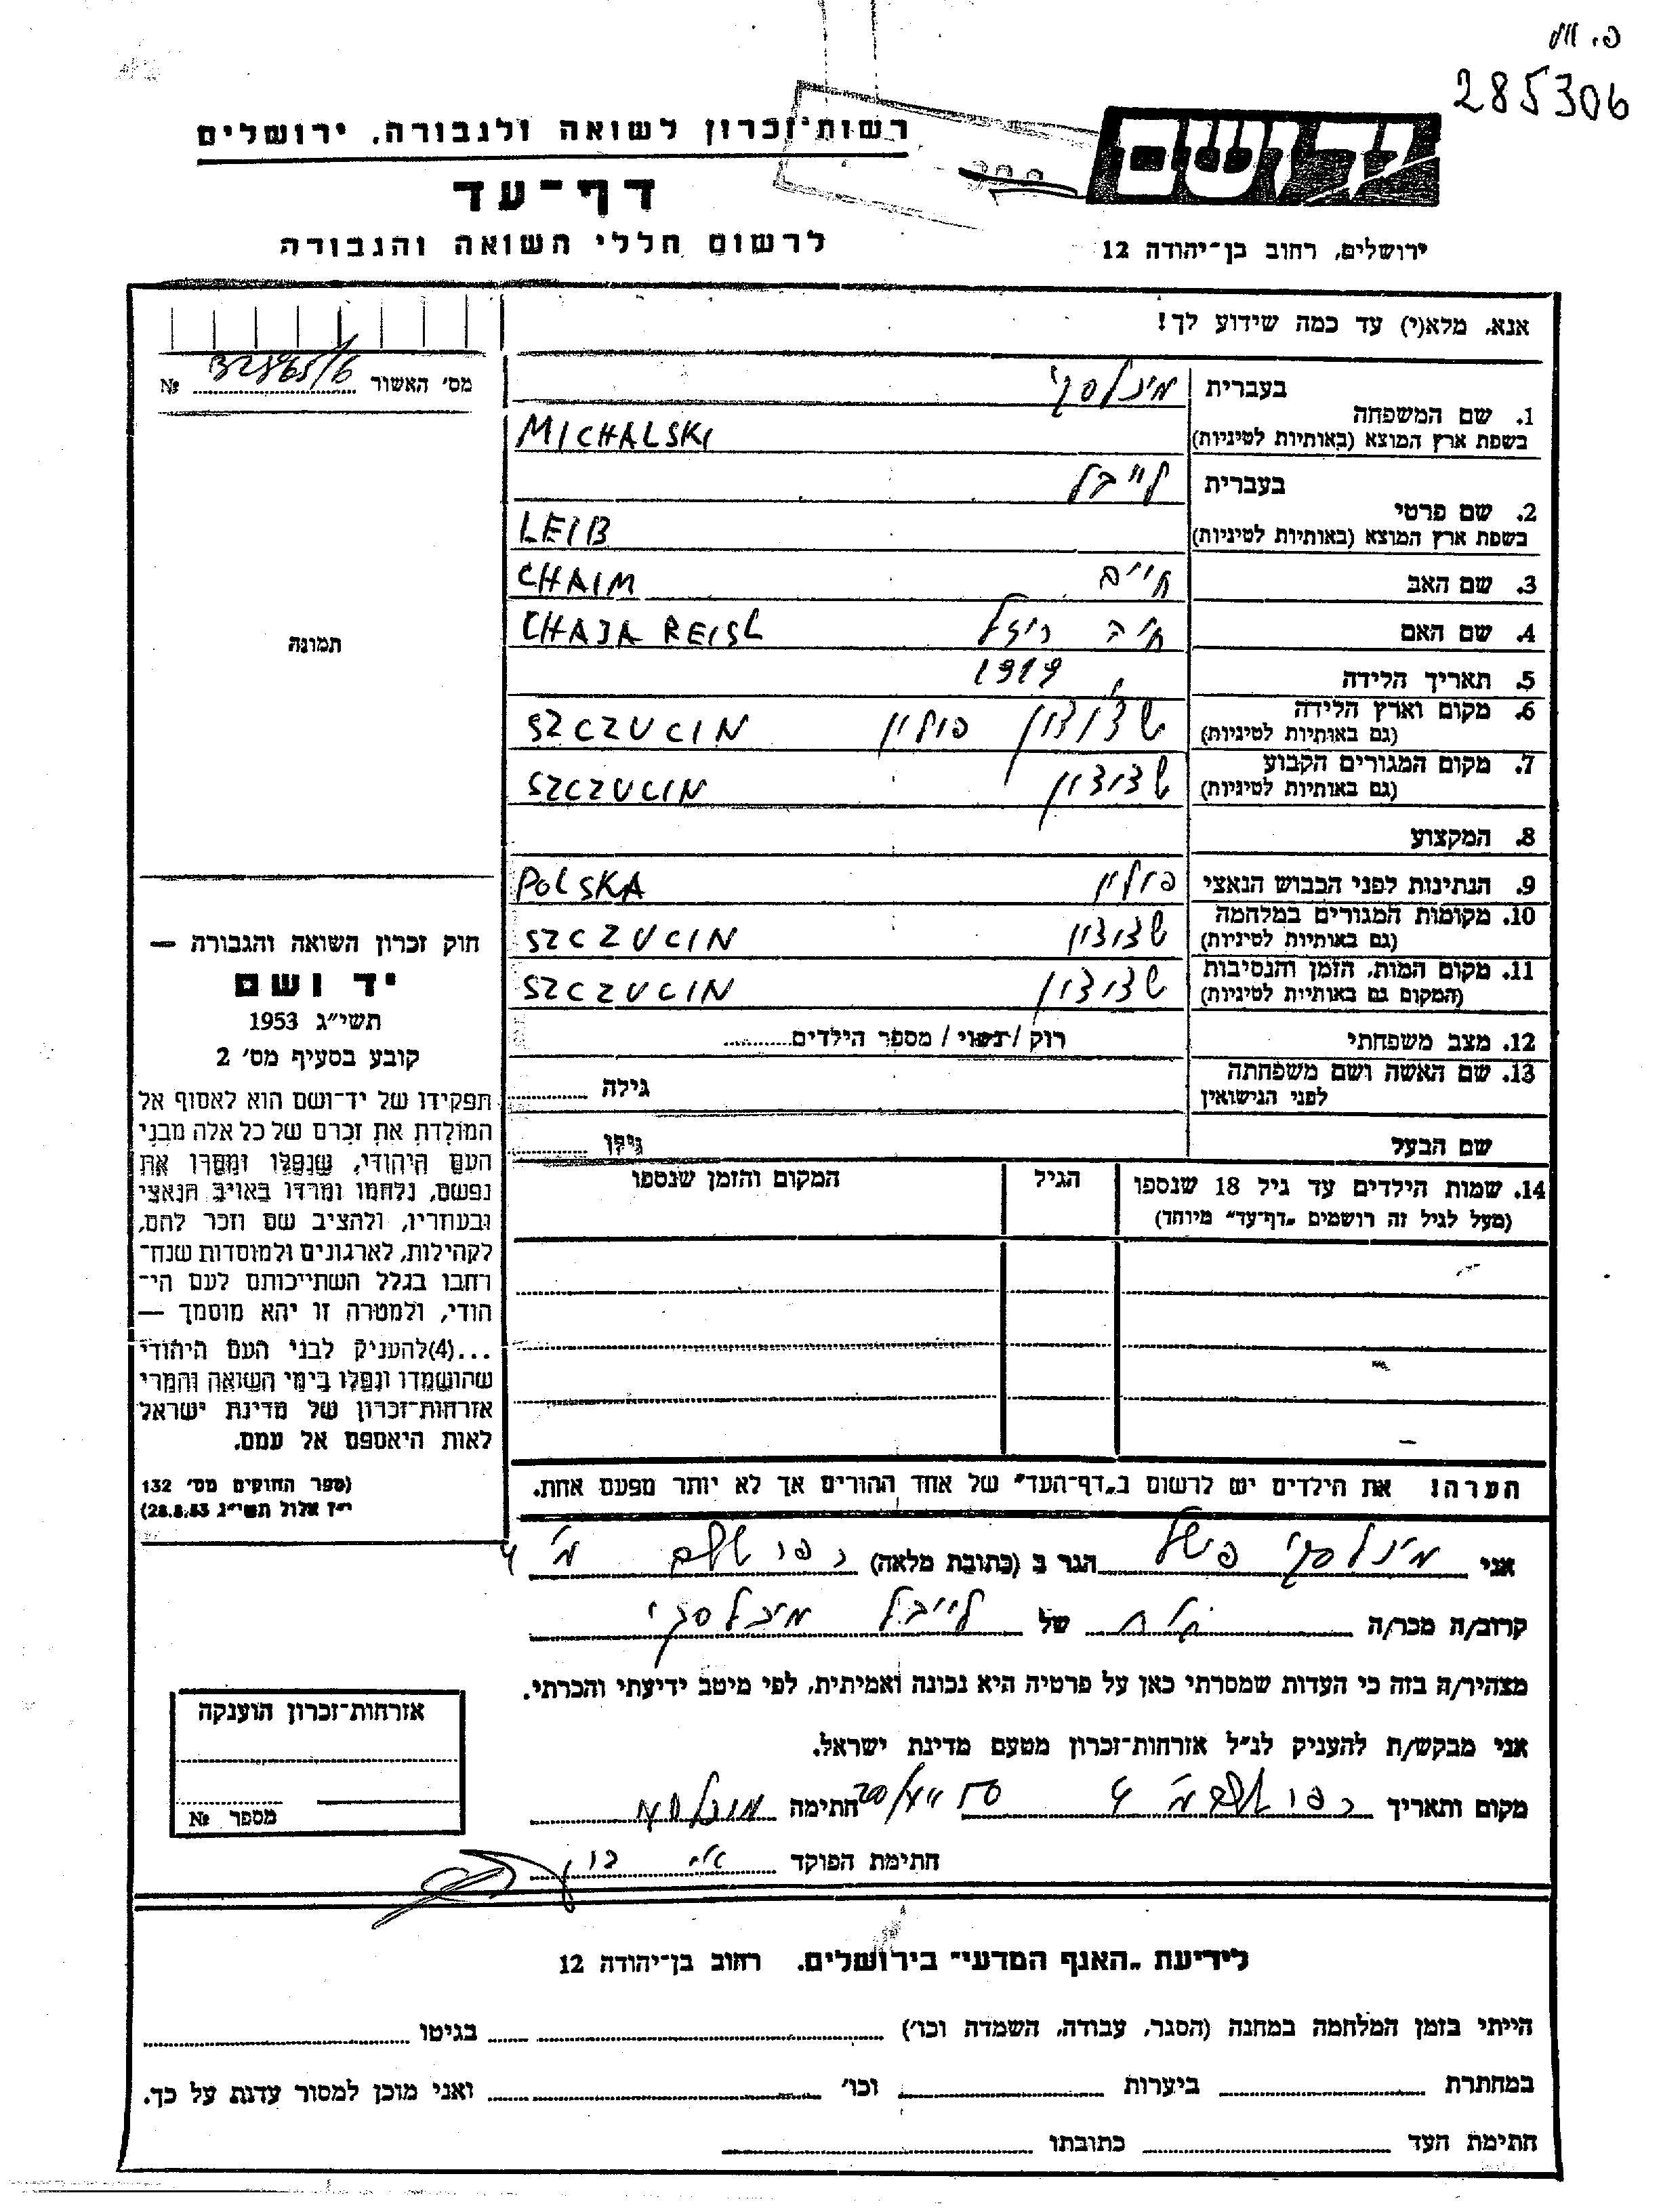 285306
יד ושם
רשות־זכרון לשואה ולגבורה, ירושלים
דף־עד
לרשום חללי השואה והגבורה
ירושלים, רחוב בן־יהודה 12
אנא, מלא(י) עד כמה שידוע לך!
מס׳ האשור № 32865/6
בעברית מיכלסקי
1. שם המשפחה
בשפת ארץ המוצא (באותיות לטיניות) MICHALSKI
בעברית לייבל
2. שם פרטי
בשפת ארץ המוצא (באותיות לטיניות) LEIB
3. שם האב חיים CHAIM
4. שם האם חיה רייזל CHAJA REISL
5. תאריך הלידה 1919
6. מקום וארץ הלידה שצוצין פולין SZCZUCIN
(גם באותיות לטיניות)
7. מקום המגורים הקבוע שצוצין SZCZUCIN
(גם באותיות לטיניות)
8. המקצוע
9. הנתינות לפני הכבוש הנאצי פולין POLSKA
10. מקומות המגורים במלחמה שצוצין SZCZUCIN
(גם באותיות לטיניות)
11. מקום המות, הזמן והנסיבות שצוצין SZCZUCIN
(המקום גם באותיות לטיניות)
12. מצב משפחתי רוק / נשוי / מספר הילדים
13. שם האשה ושם משפחתה
לפני הנישואין גילה
שם הבעל גילו
14. שמות הילדים עד גיל 18 שנספו הגיל המקום והזמן שנספו
(מעל לגיל זה רושמים „דף־עד״ מיוחד)
הערה! את הילדים יש לרשום ב„דף־העד״ של אחד ההורים אך לא יותר מפעם אחת.
תמונה
חוק זכרון השואה והגבורה —
יד ושם
תשי״ג 1953
קובע בסעיף מס׳ 2
תפקידו של יד־ושם הוא לאסוף אל
המולדת את זכרם של כל אלה מבני
העם היהודי, שנפלו ומסרו את
נפשם, נלחמו ומרדו באויב הנאצי
ובעוזריו, ולהציב שם וזכר להם,
לקהילות, לארגונים ולמוסדות שנח־
רבו בגלל השתייכותם לעם הי־
הודי, ולמטרה זו יהא מוסמך —
...(4)להעניק לבני העם היהודי
שהושמדו ונפלו בימי השואה והמרי
אזרחות־זכרון של מדינת ישראל
לאות היאספם אל עמם.
(ספר החוקים מס׳ 132
י״ז אלול תשי״ג 28.8.53)
אני מיכלסקי פישל הגר ב (כתובת מלאה)
קרוב/ה מכר/ה אח של לייבל מיכלסקי
מצהיר/ה בזה כי העדות שמסרתי כאן על פרטיה היא נכונה ואמיתית, לפי מיטב ידיעתי והכרתי.
אני מבקש/ת להעניק לנ״ל אזרחות־זכרון מטעם מדינת ישראל.
מקום ותאריך חתימה
חתימת הפוקד
אזרחות־זכרון הוענקה
מספר №
לידיעת „האגף המדעי״ בירושלים. רחוב בן־יהודה 12
הייתי בזמן המלחמה במחנה (הסגר, עבודה, השמדה וכו׳) בגיטו
במחתרת ביערות וכו׳ ואני מוכן למסור עדות על כך.
חתימת העד כתובתו